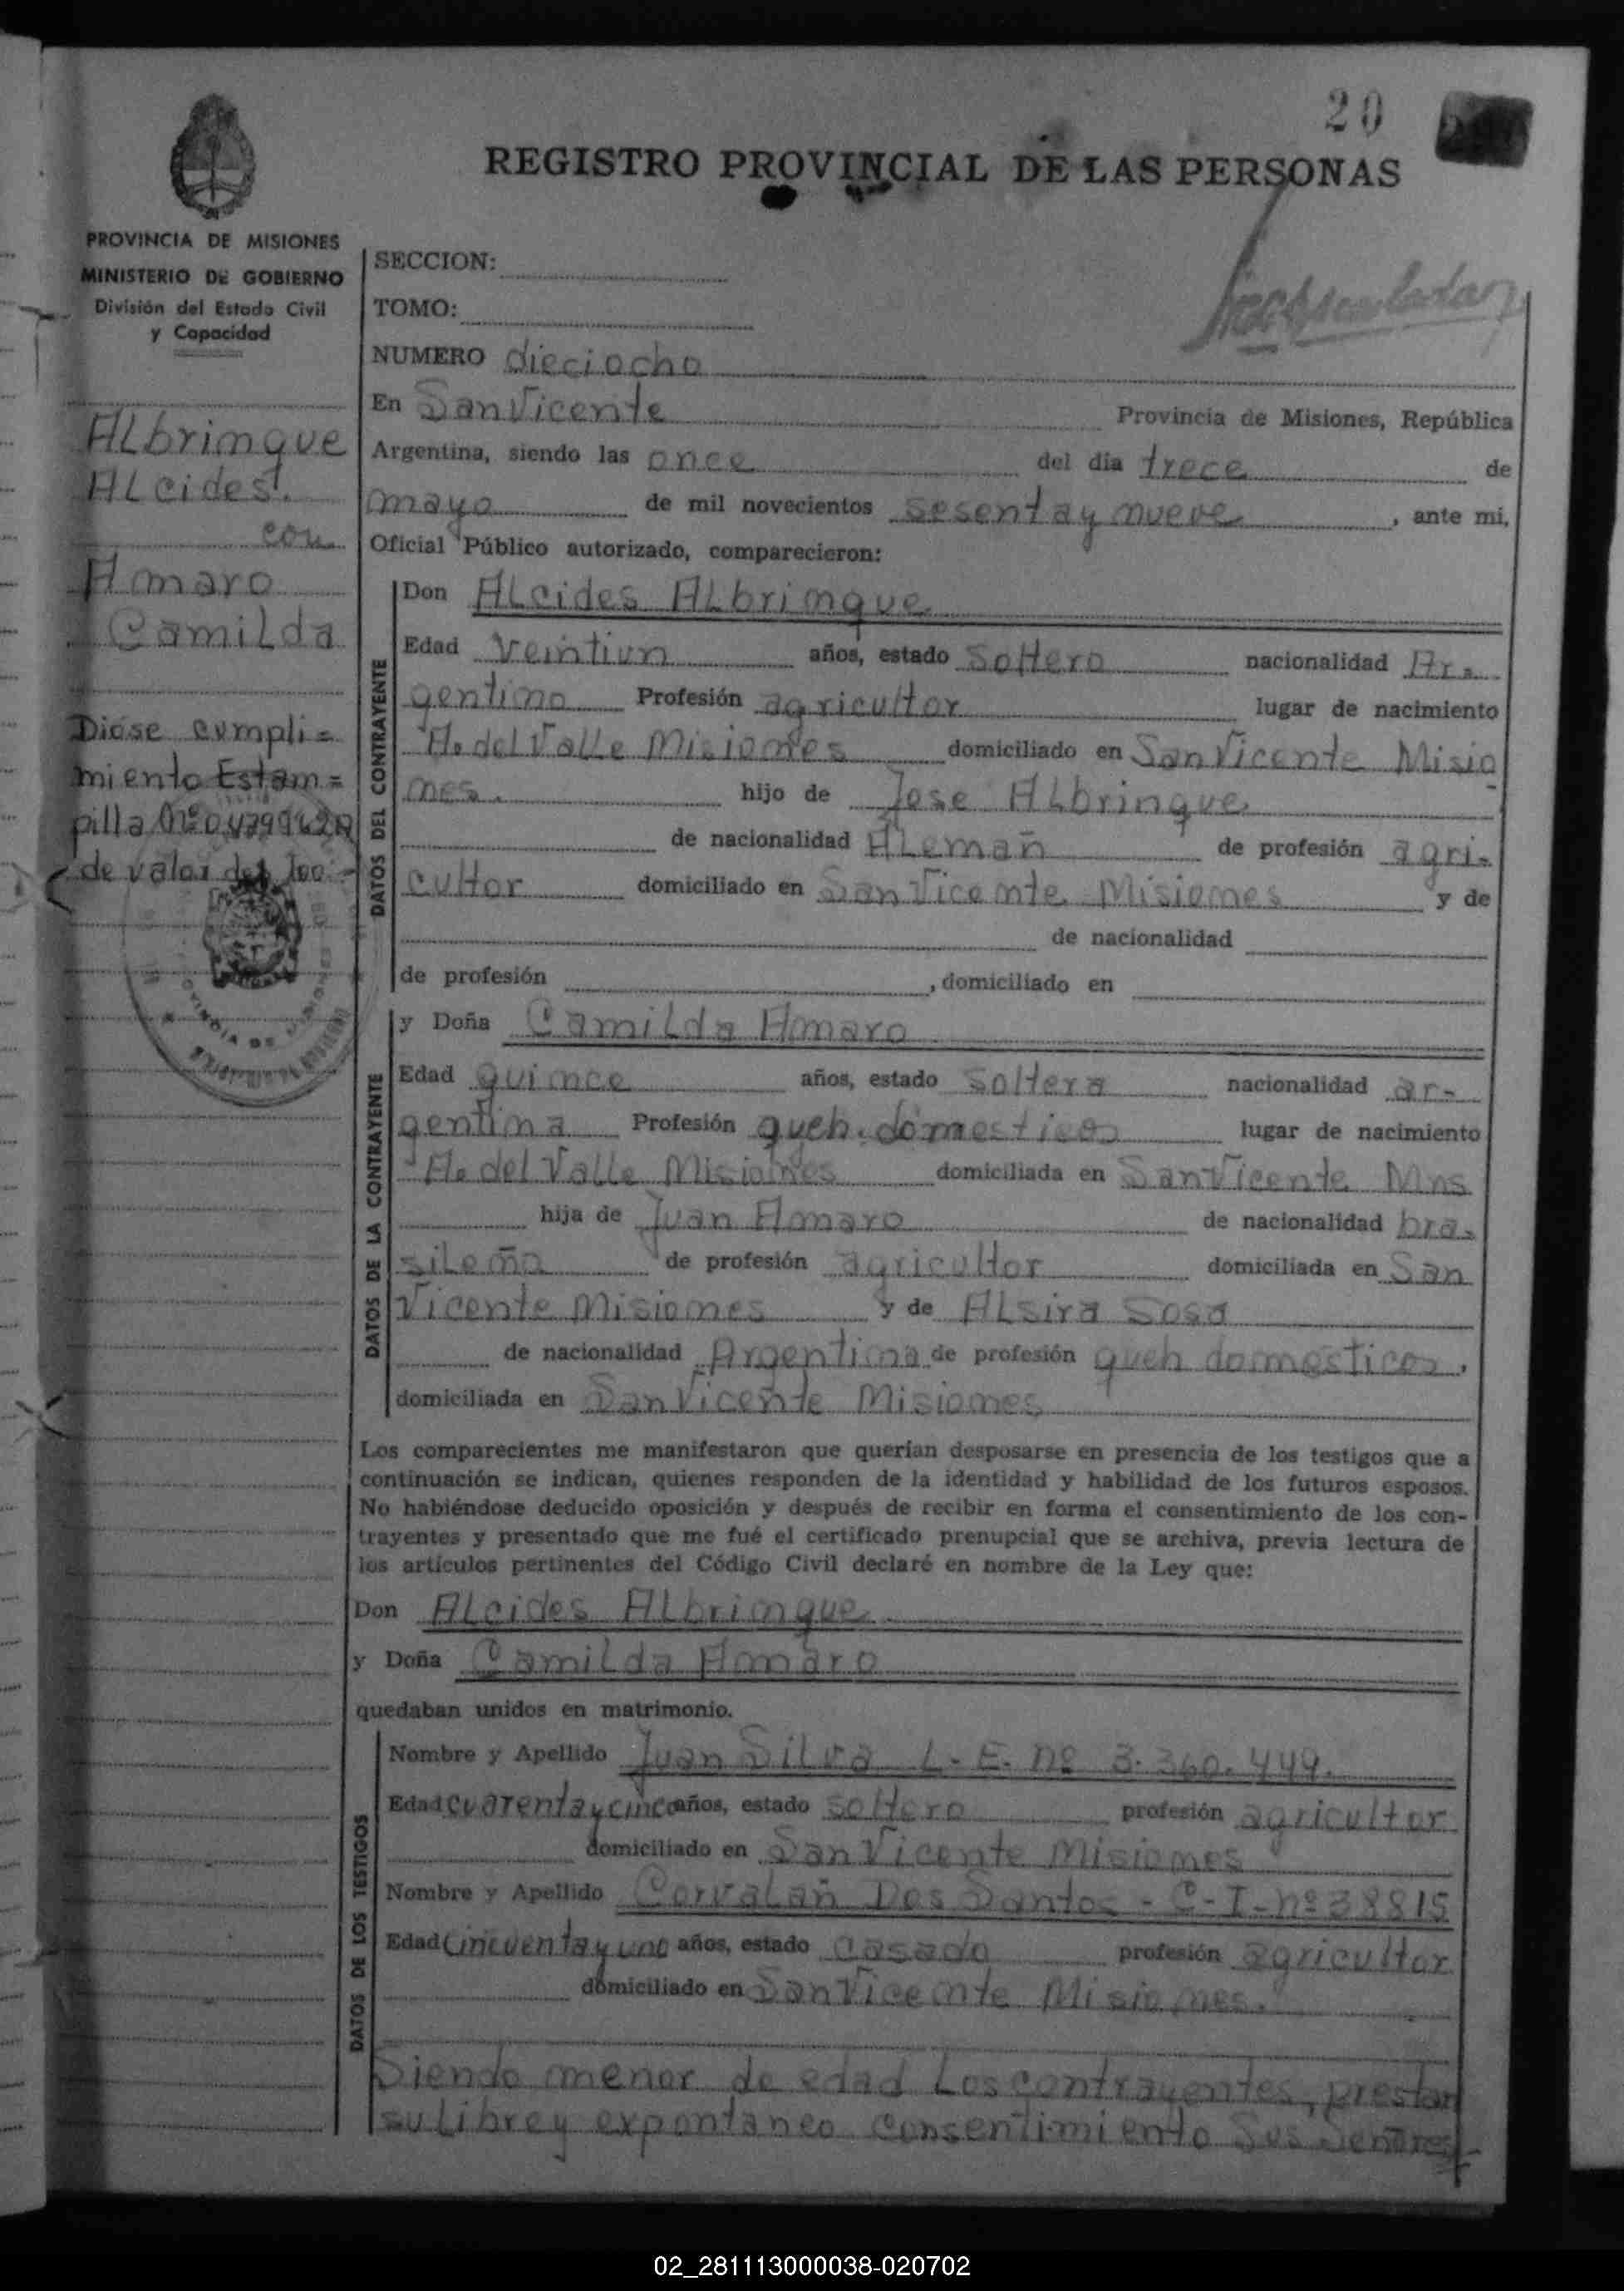 20
REGISTRO PROVINCIAL DE LAS PERSONAS
PROVINCIA DE MISIONES
MINISTERIO DE GOBIERNO
División del Estado Civil
y Capacidad
ALbrimque
ALcides.
con
Amaro
Camilda
Dióse cumpli=
miento Estam=
pilla Nº
de valor de $ 100
SECCION:
TOMO:
NUMERO dieciocho
En San Vicente Provincia de Misiones, República
Argentina, siendo las once del día trece de
mayo de mil novecientos sesenta y nueve, ante mi,
Oficial Público autorizado, comparecieron:
DATOS DEL CONTRAYENTE
Don ALcides ALbrimque
Edad veintiun años, estado soltero nacionalidad Ar-
gentino Profesión agricultor lugar de nacimiento
A. del Valle Misiones domiciliado en San Vicente Misio
nes. hijo de Jose ALbrinque
de nacionalidad ALemañ de profesión agri-
cultor domiciliado en San Vicente Misiones y de
de nacionalidad
de profesión , domiciliado en
DATOS DE LA CONTRAYENTE
y Doña Camilda Amaro
Edad quince años, estado soltera nacionalidad ar-
gentina Profesión queh. domesticos lugar de nacimiento
A. del Valle Misiones domiciliada en San Vicente Mns
hija de Juan Amaro de nacionalidad bra-
sileña de profesión agricultor domiciliada en San
Vicente Misiones y de ALsira Sosa
de nacionalidad Argentina de profesión queh domesticos,
domiciliada en San Vicente Misiones
Los comparecientes me manifestaron que querían desposarse en presencia de los testigos que a
continuación se indican, quienes responden de la identidad y habilidad de los futuros esposos.
No habiéndose deducido oposición y después de recibir en forma el consentimiento de los con-
trayentes y presentado que me fué el certificado prenupcial que se archiva, previa lectura de
los artículos pertinentes del Código Civil declaré en nombre de la Ley que:
Don ALcides ALbrimque
y Doña Camilda Amaro
quedaban unidos en matrimonio.
DATOS DE LOS TESTIGOS
Nombre y Apellido Juan Silva L-E. nº 3.360.449.
Edad cuarenta y cinco años, estado soltero profesión agricultor
domiciliado en San Vicente Misiones
Nombre y Apellido Corvalañ Dos Santos - C-I-nº 38815
Edad Cincuenta y uno años, estado casado profesión agricultor
domiciliado en San Vicente Misiones.
Siendo menor de edad Los contrayentes, prestan
su Libre y expontaneo consentimiento Sus Señores-
02_281113000038-020702